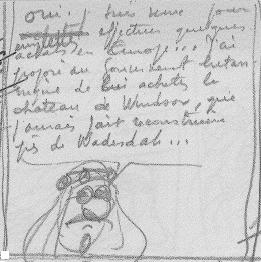 Oui, je suis venu pour
effectuer quelques
achats en Europe... J'ai
proposé au Gouvernement britan-
nique de lui acheter le
château de Windsor, que
j'aurais fait reconstruire
près de Wadesdah...